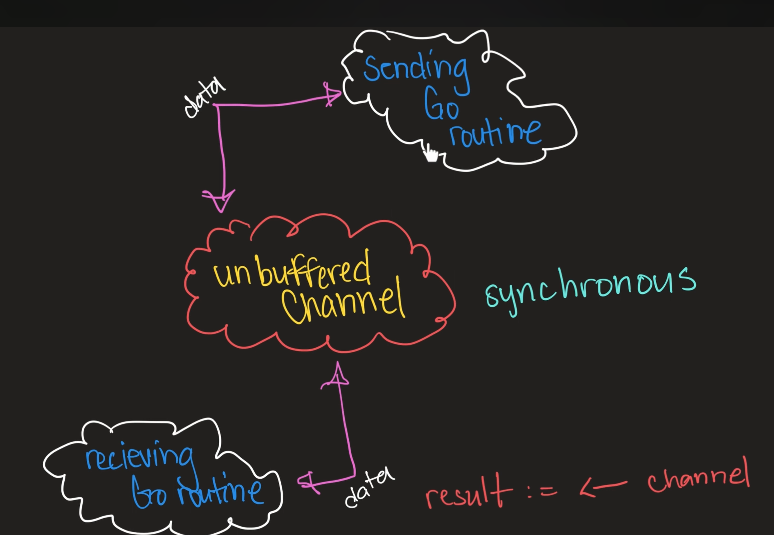 Sending
Go
routine
data
unbuffered
Channel
synchronous
recieving
Go routine
data
result := <- channel